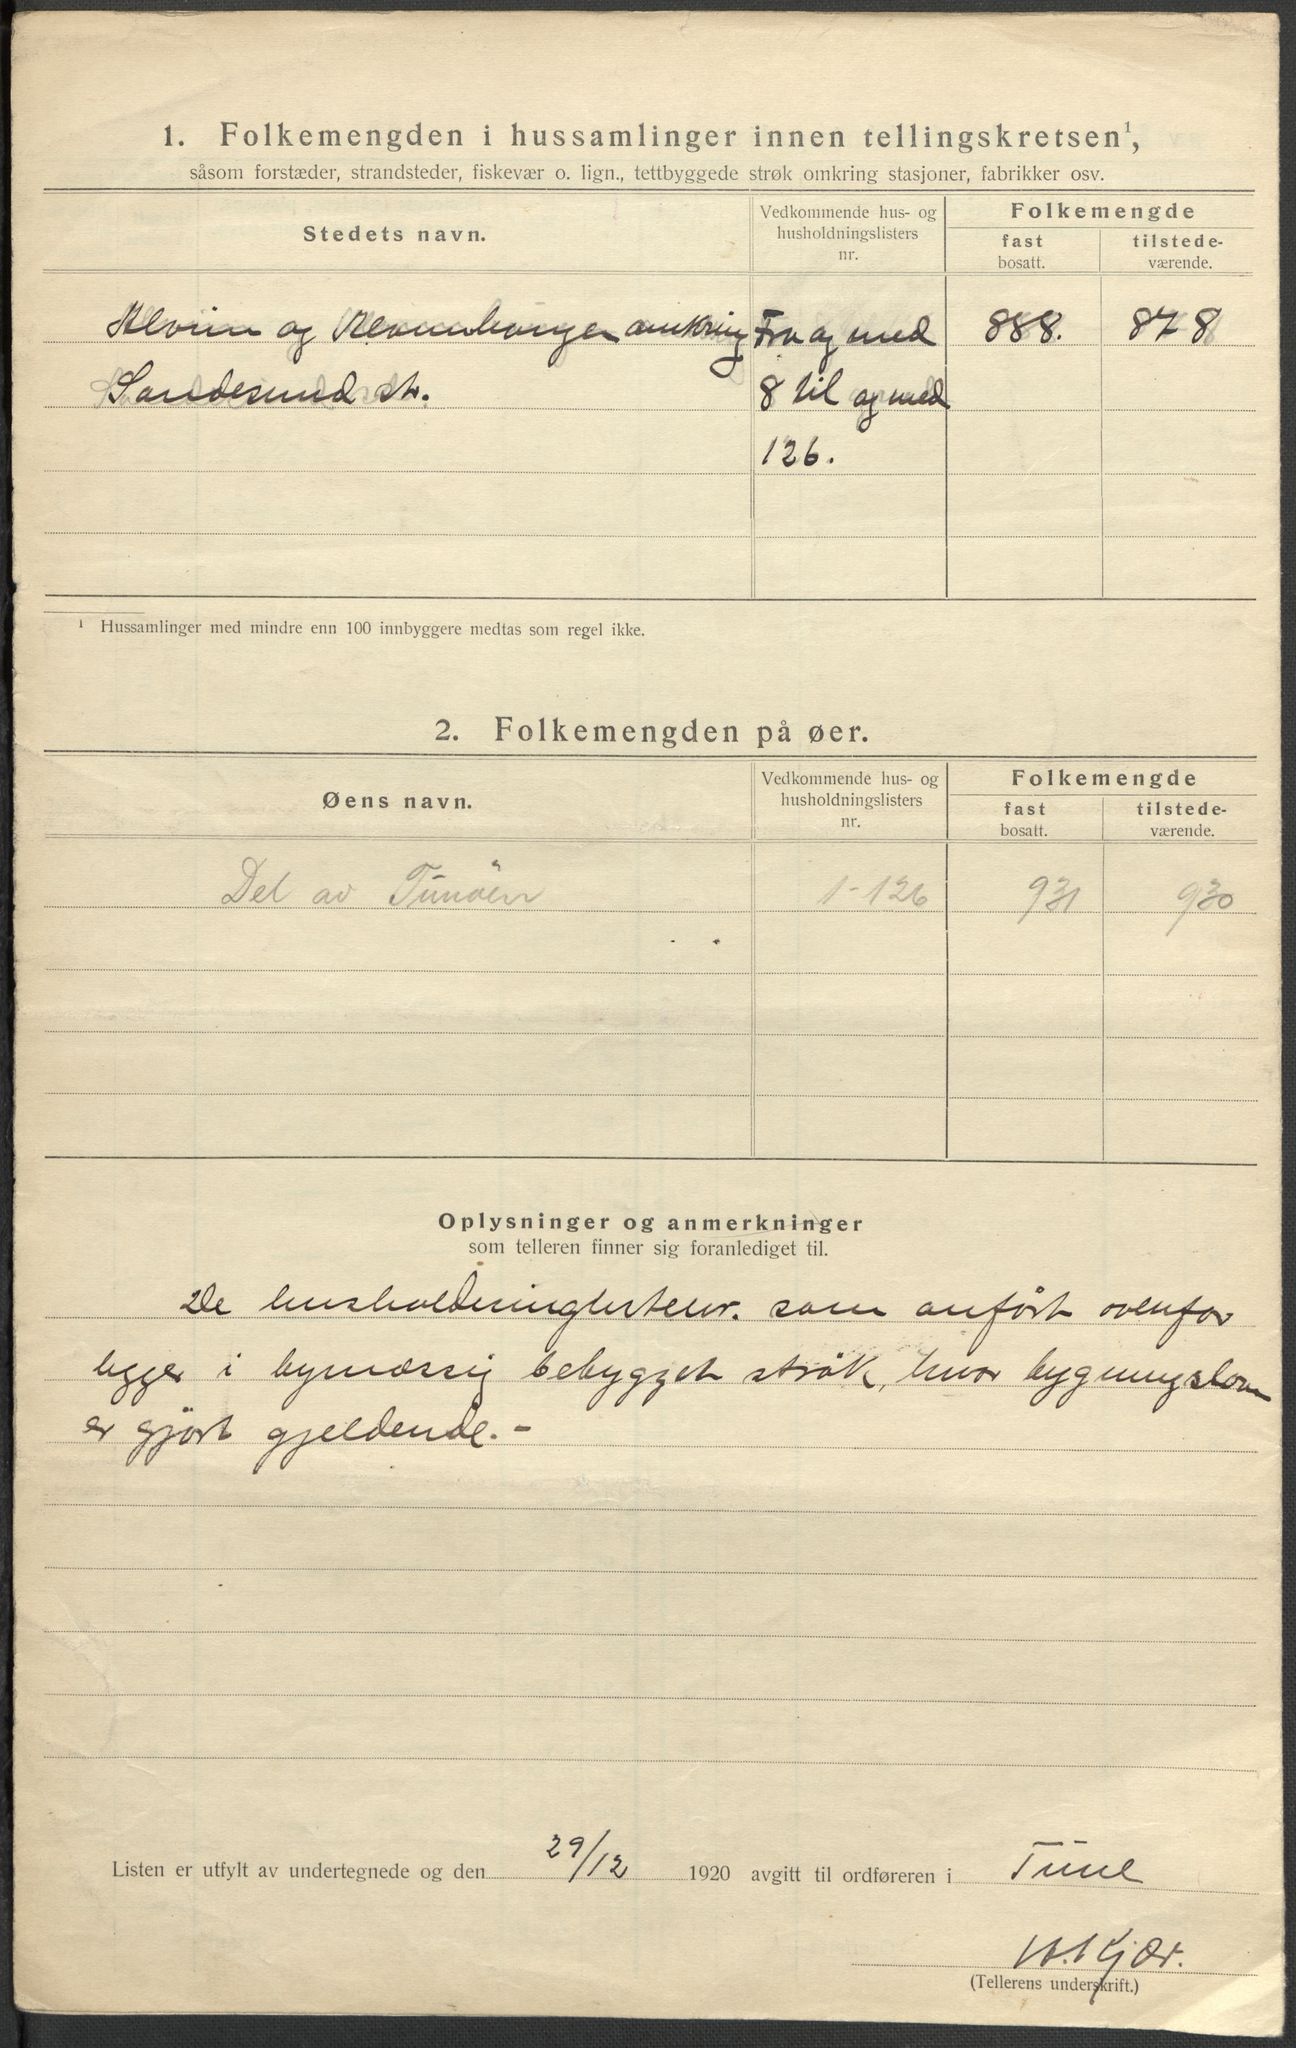 1. Folkemengden i hussamlinger innen tellingskretsen¹,
såsom forstæder, strandsteder, fiskevær o. lign., tettbyggede strøk omkring stasjoner, fabrikker osv.
Stedets navn.
Vedkommende hus- og husholdningslisters nr.
Folkemengde
fast bosatt.
tilstedeværende.
og omkring Fra og med 888. 878
Sandesund st. 8 til og med
126.
¹ Hussamlinger med mindre enn 100 innbyggere medtas som regel ikke.
2. Folkemengden på øer.
Øens navn.
Vedkommende hus- og husholdningslisters nr.
Folkemengde
fast bosatt.
tilstedeværende.
Del av Tunöen 1-126 931 930
Oplysninger og anmerkninger
som telleren finner sig foranlediget til.
De som anført ovenfor
ligger i bymæssig bebygget strök, hvor bygningsloven
er gjört gjeldende.-
Listen er utfylt av undertegnede og den 29/12 1920 avgitt til ordføreren i Tune
Kjær.
(Tellerens underskrift.)